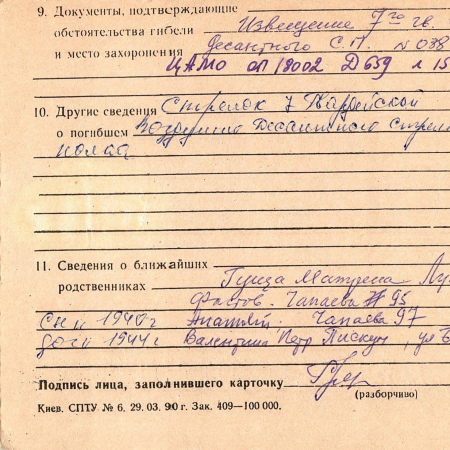 9. Документы, подтверждающие
обстоятельства гибели Извещение 7го гв.
и место захоронения Десантного С.П. N 038
ЦАМО оп 18002 Д 659 л 15
10. Другие сведения Стрелок 7 Гвардейской
о погибшем Воздушно Десантного Стрел
полка
11. Сведения о ближайших
родственниках Гуща Матрена
Фастов. Чапаева 95
сын 1940 г Анатолий. Чапаева 97
дочь 1944 г Валентина Петр Пискун, ул
Подпись лица, заполнившего карточку
(разборчиво)
Киев. СПТУ № 6. 29. 03. 90 г. Зак. 409—100 000.